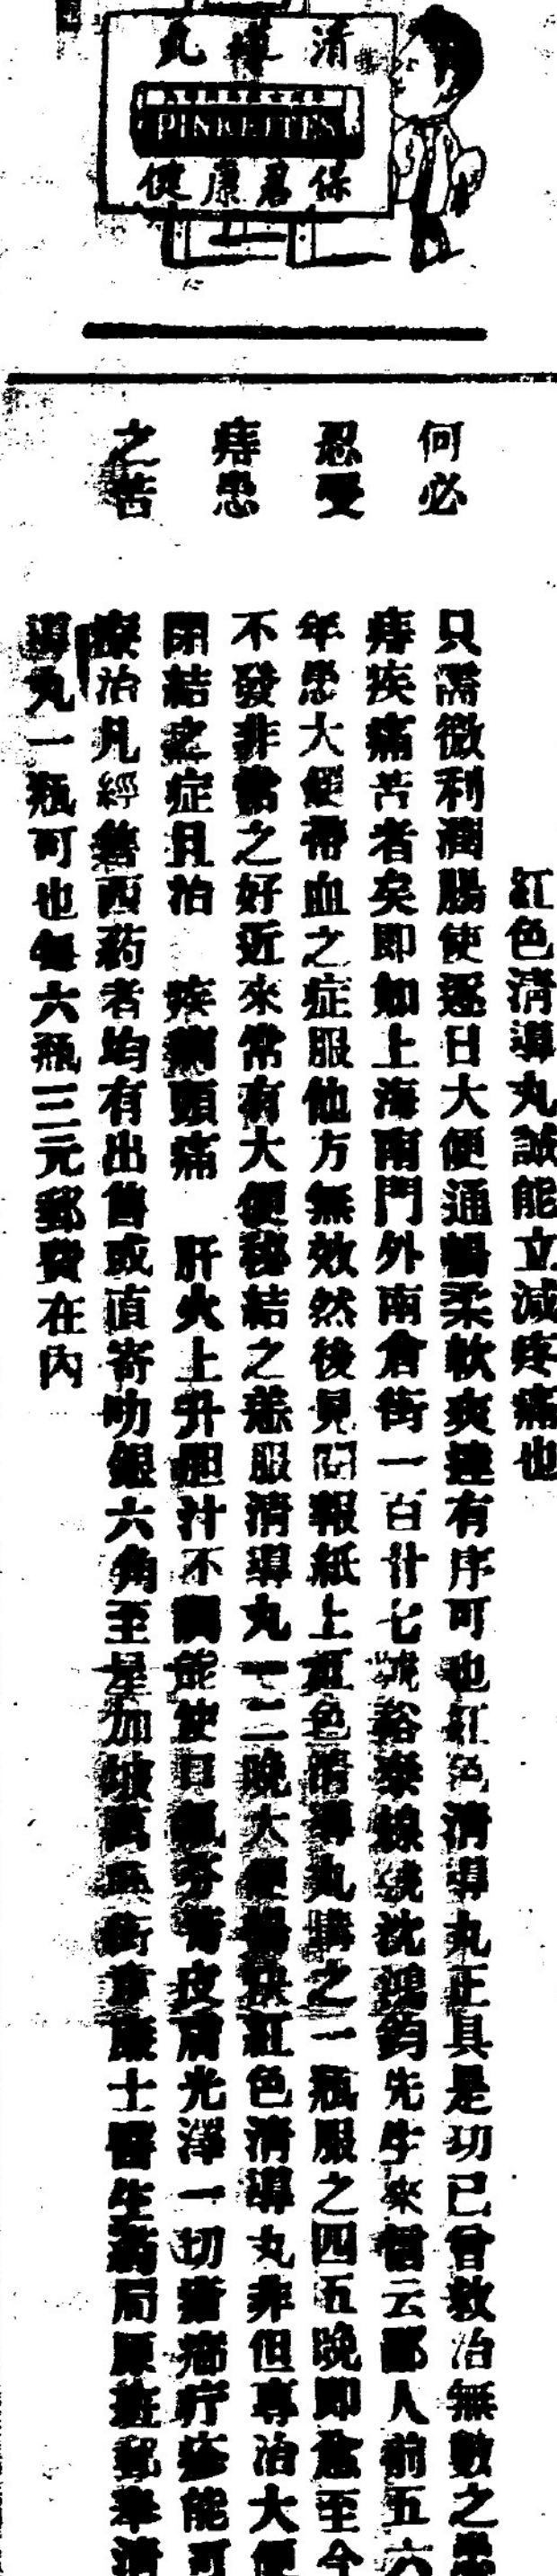 清導丸
PINKETTES
保君康健
何必
忍受
痔患
之苦
紅色清導丸誠能立減疼痛也
只需微利潤腸使逐日大便通暢柔軟爽達有序可也紅色清導丸正具是功已曾救治無數之患
痔疾痛苦者矣即如上海南門外南倉街一百廿七號裕泰線號沈鴻鈞先生來信云鄙人前五六
年患大便帶血之症服他方無效然後見報紙上紅色清導丸購之一瓶服之四五晚即愈至今
不發非常之好近來常有大便秘結之恙服清導丸一二晚大便暢快紅色清導丸非但專治大便
閉結之症且治 疾病頭痛 肝火上升胆汁不調能使口氣芬芳皮膚光澤一切瘡癤疔疹能可
療治凡經售西药者均有出售或直寄叻銀六角至星加坡士醫生药局原班郵奉清
導丸一瓶可也每六瓶三元郵費在內